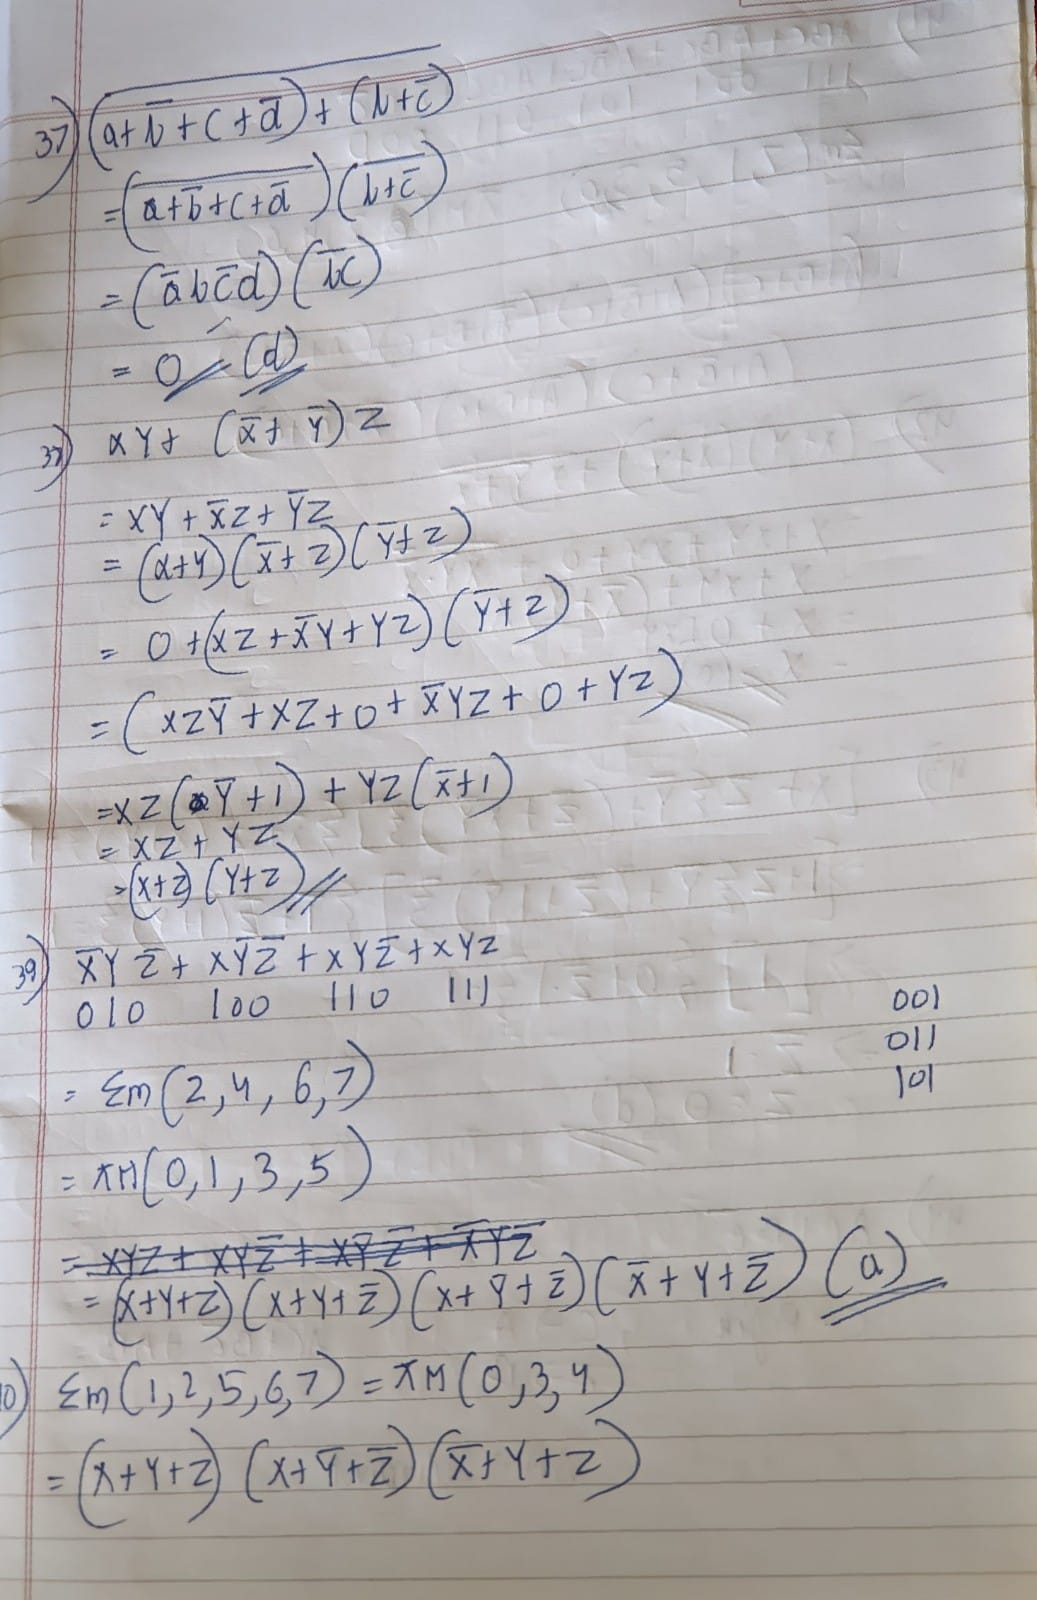 37) \overline{(a+b̅+c+d̅)+(b+c̅)}
=(\overline{a+b̅+c+d̅})(\overline{b+c̅})
=(a̅bc̅d)(b̅c)
= 0 (d)
38) XY+ (X̅+ Y̅)Z
= XY+X̅Z+Y̅Z
= (X+Y)(X̅+Z)(Y̅+Z)
= 0+(XZ+X̅Y+YZ)(Y̅+Z)
=(XZY̅+XZ+0+X̅YZ+0+YZ)
=XZ(Y̅+1)+YZ(X̅+1)
= XZ+YZ
=(X+Z)(Y+Z)
39) X̅YZ̅+XY̅Z̅+XYZ̅+XYZ
010 100 110 111
001
011
101
= Σm(2,4,6,7)
= πM(0,1,3,5)
= XYZ+XYZ̅+XY̅Z̅+X̅YZ̅
= (X+Y+Z)(X+Y+Z̅)(X+Y̅+Z̅)(X̅+Y+Z̅) (a)
10) Σm(1,2,5,6,7)=πM(0,3,4)
= (X+Y+Z)(X+Y̅+Z̅)(X̅+Y+Z)